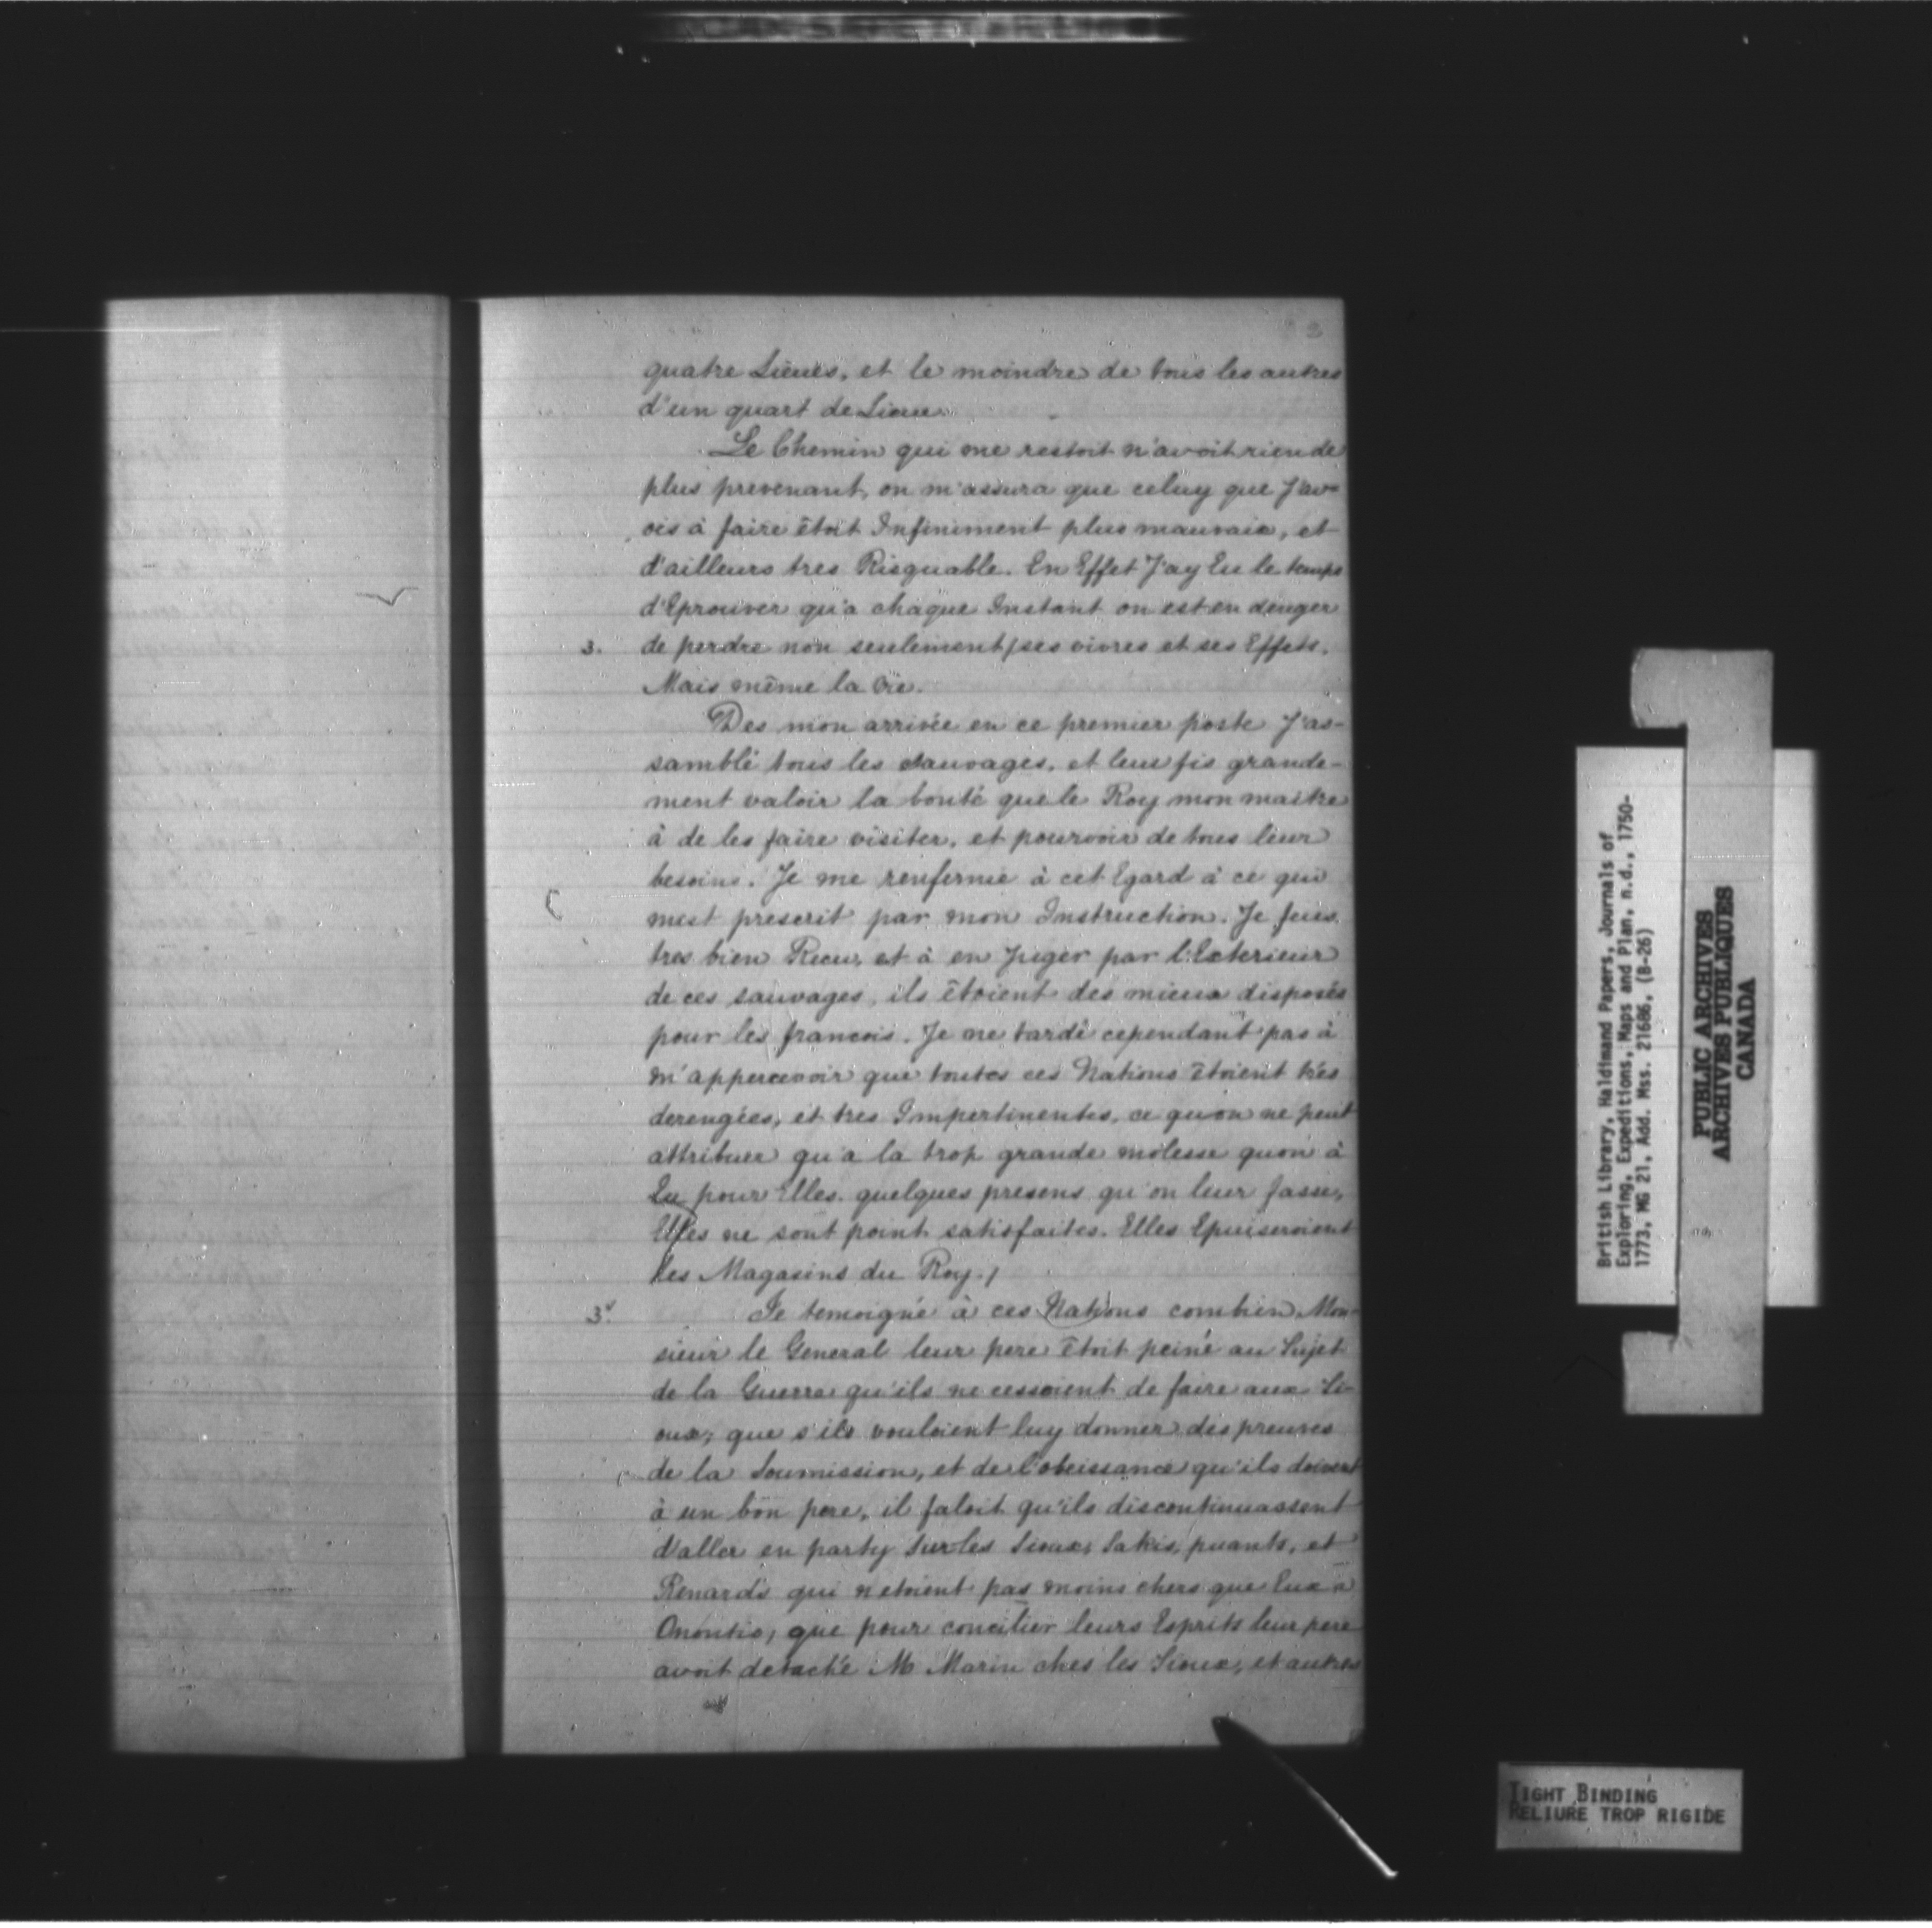 2
quatre Lieues, et le moindre de tous les autres
d'un quart de Lieue.
Le Chemin qui me restoit n'avoit rien de
plus prevenant, on m'assura que celuy que J'av-
ois à faire étoit Infiniment plus mauvais, et
d'ailleurs tres Risquable. En Effet J'ay Eu le temps
d'Eprouver qu'a chaque Instant on est en denger
3. de perdre non seulement / ses vivres et ses Effets.
Mais même la vie.
Des mon arrivée en ce premier poste J'as-
samblé tous les sauvages, et leur fis grande-
ment valoir la bonté que le Roy mon maitre
à de les faire visiter, et pourvoir de tous leur
besoins. Je me renfermé à cet Egard à ce qui
mest prescrit par mon Instruction. Je fus
tres bien Recu, et à en Juger par l'Exterieur
de ces sauvages, ils étoient des mieux disposés
pour les francois. Je ne tardé cependant pas à
m'appercevoir que toutes ces Nations étoient très
derengées, et tres Impertinentes, ce quon ne peut
attribuer qu'a la trop grande molesse quon à
Eu pour Elles. quelques presens qu'on leur fasse,
Elles ne sont point satisfaites. Elles Epuiseroient
les Magasins du Roy. /
3v. Je temoigné à ces Nations combien Mon-
sieur le General leur pere étoit peiné au Sujet
de la Guerre qu'ils ne cessoient de faire aux Si-
oux; que s'ils vouloient luy donner des preuves
de la Soumission, et de l'obeissance qu'ils doivent
à un bon pere, il faloit qu'ils discontinuassent
d'aller en party sur les Sioux, Sakis, puants, et
Renards qui n'etoient pas moins chers que Eux a
Onontio, que pour concilier leurs Esprits leur pere
avoit detaché M Marin ches les Sioux, et autres
British Library, Haldimand Papers, Journals of
Exploring, Expeditions, Maps and Plan, n.d., 1750-
1773, MG 21, Add. Mss. 21686, (B-26)
PUBLIC ARCHIVES
ARCHIVES PUBLIQUES
CANADA
TIGHT BINDING
RELIURE TROP RIGIDE